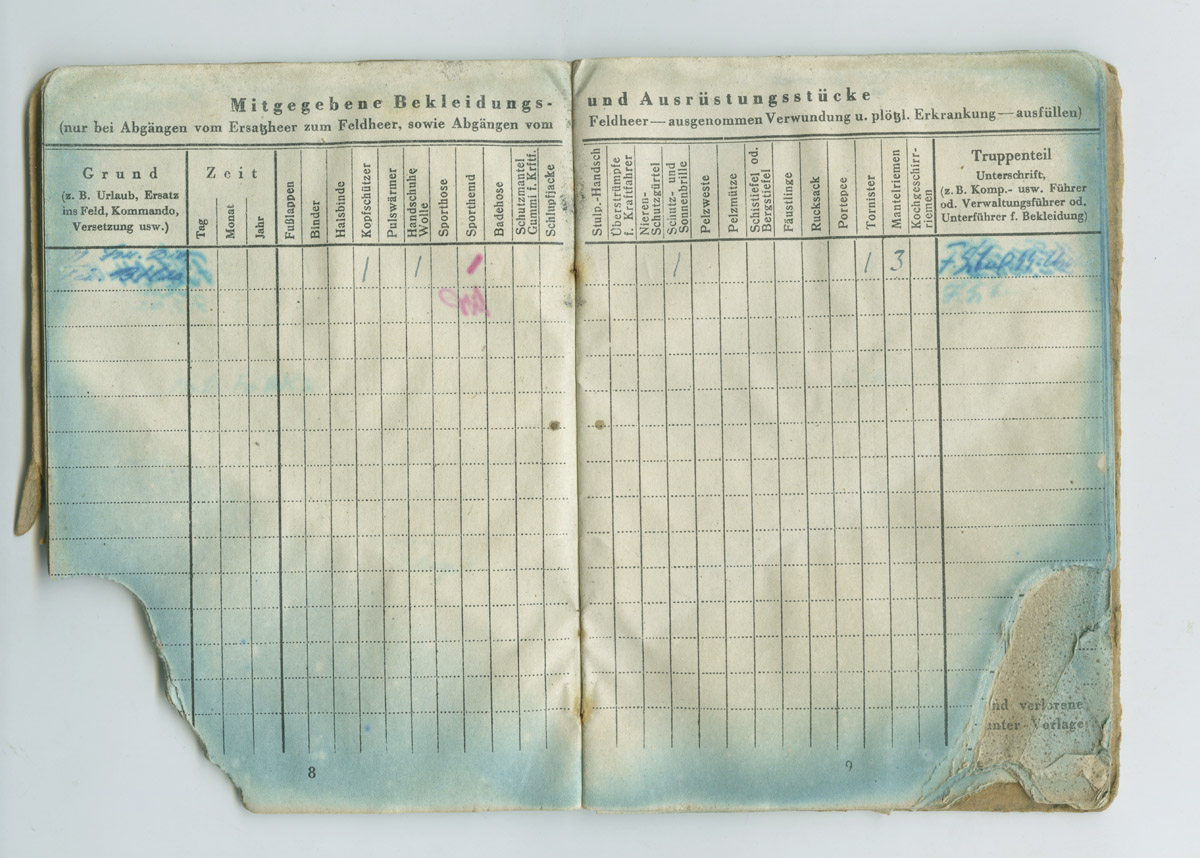 Mitgegebene Bekleidungs-
(nur bei Abgängen vom Ersatzheer zum Feldheer, sowie Abgängen vom
Grund
(z. B. Urlaub, Ersatz
ins Feld, Kommando,
Versetzung usw.)
Zeit
Tag
Monat
Jahr
Fußlappen
Binder
Halsbinde
Kopfschützer
Pulswärmer
Handschuhe
Wolle
Sporthose
Sporthemd
Badehose
Schutzmantel
Gummi f. Krftf.
Schlupfjacke
1 1 1
8
und Ausrüstungsstücke
Feldheer — ausgenommen Verwundung u. plötzl. Erkrankung — ausfüllen)
Stulp.-Handsch
Überstrümpfe
f. Kraftfahrer
Nieren-
Schutzgürtel
Schutz- und
Sonnenbrille
Pelzweste
Pelzmütze
Schistiefel od.
Bergstiefel
Fäustlinge
Rucksack
Portepee
Tornister
Mantelriemen
Kochgeschirr-
riemen
Truppenteil
Unterschrift,
(z. B. Komp.- usw. Führer
od. Verwaltungsführer od.
Unterführer f. Bekleidung)
1 1 3
nd verlorene
unter Vorlage
9